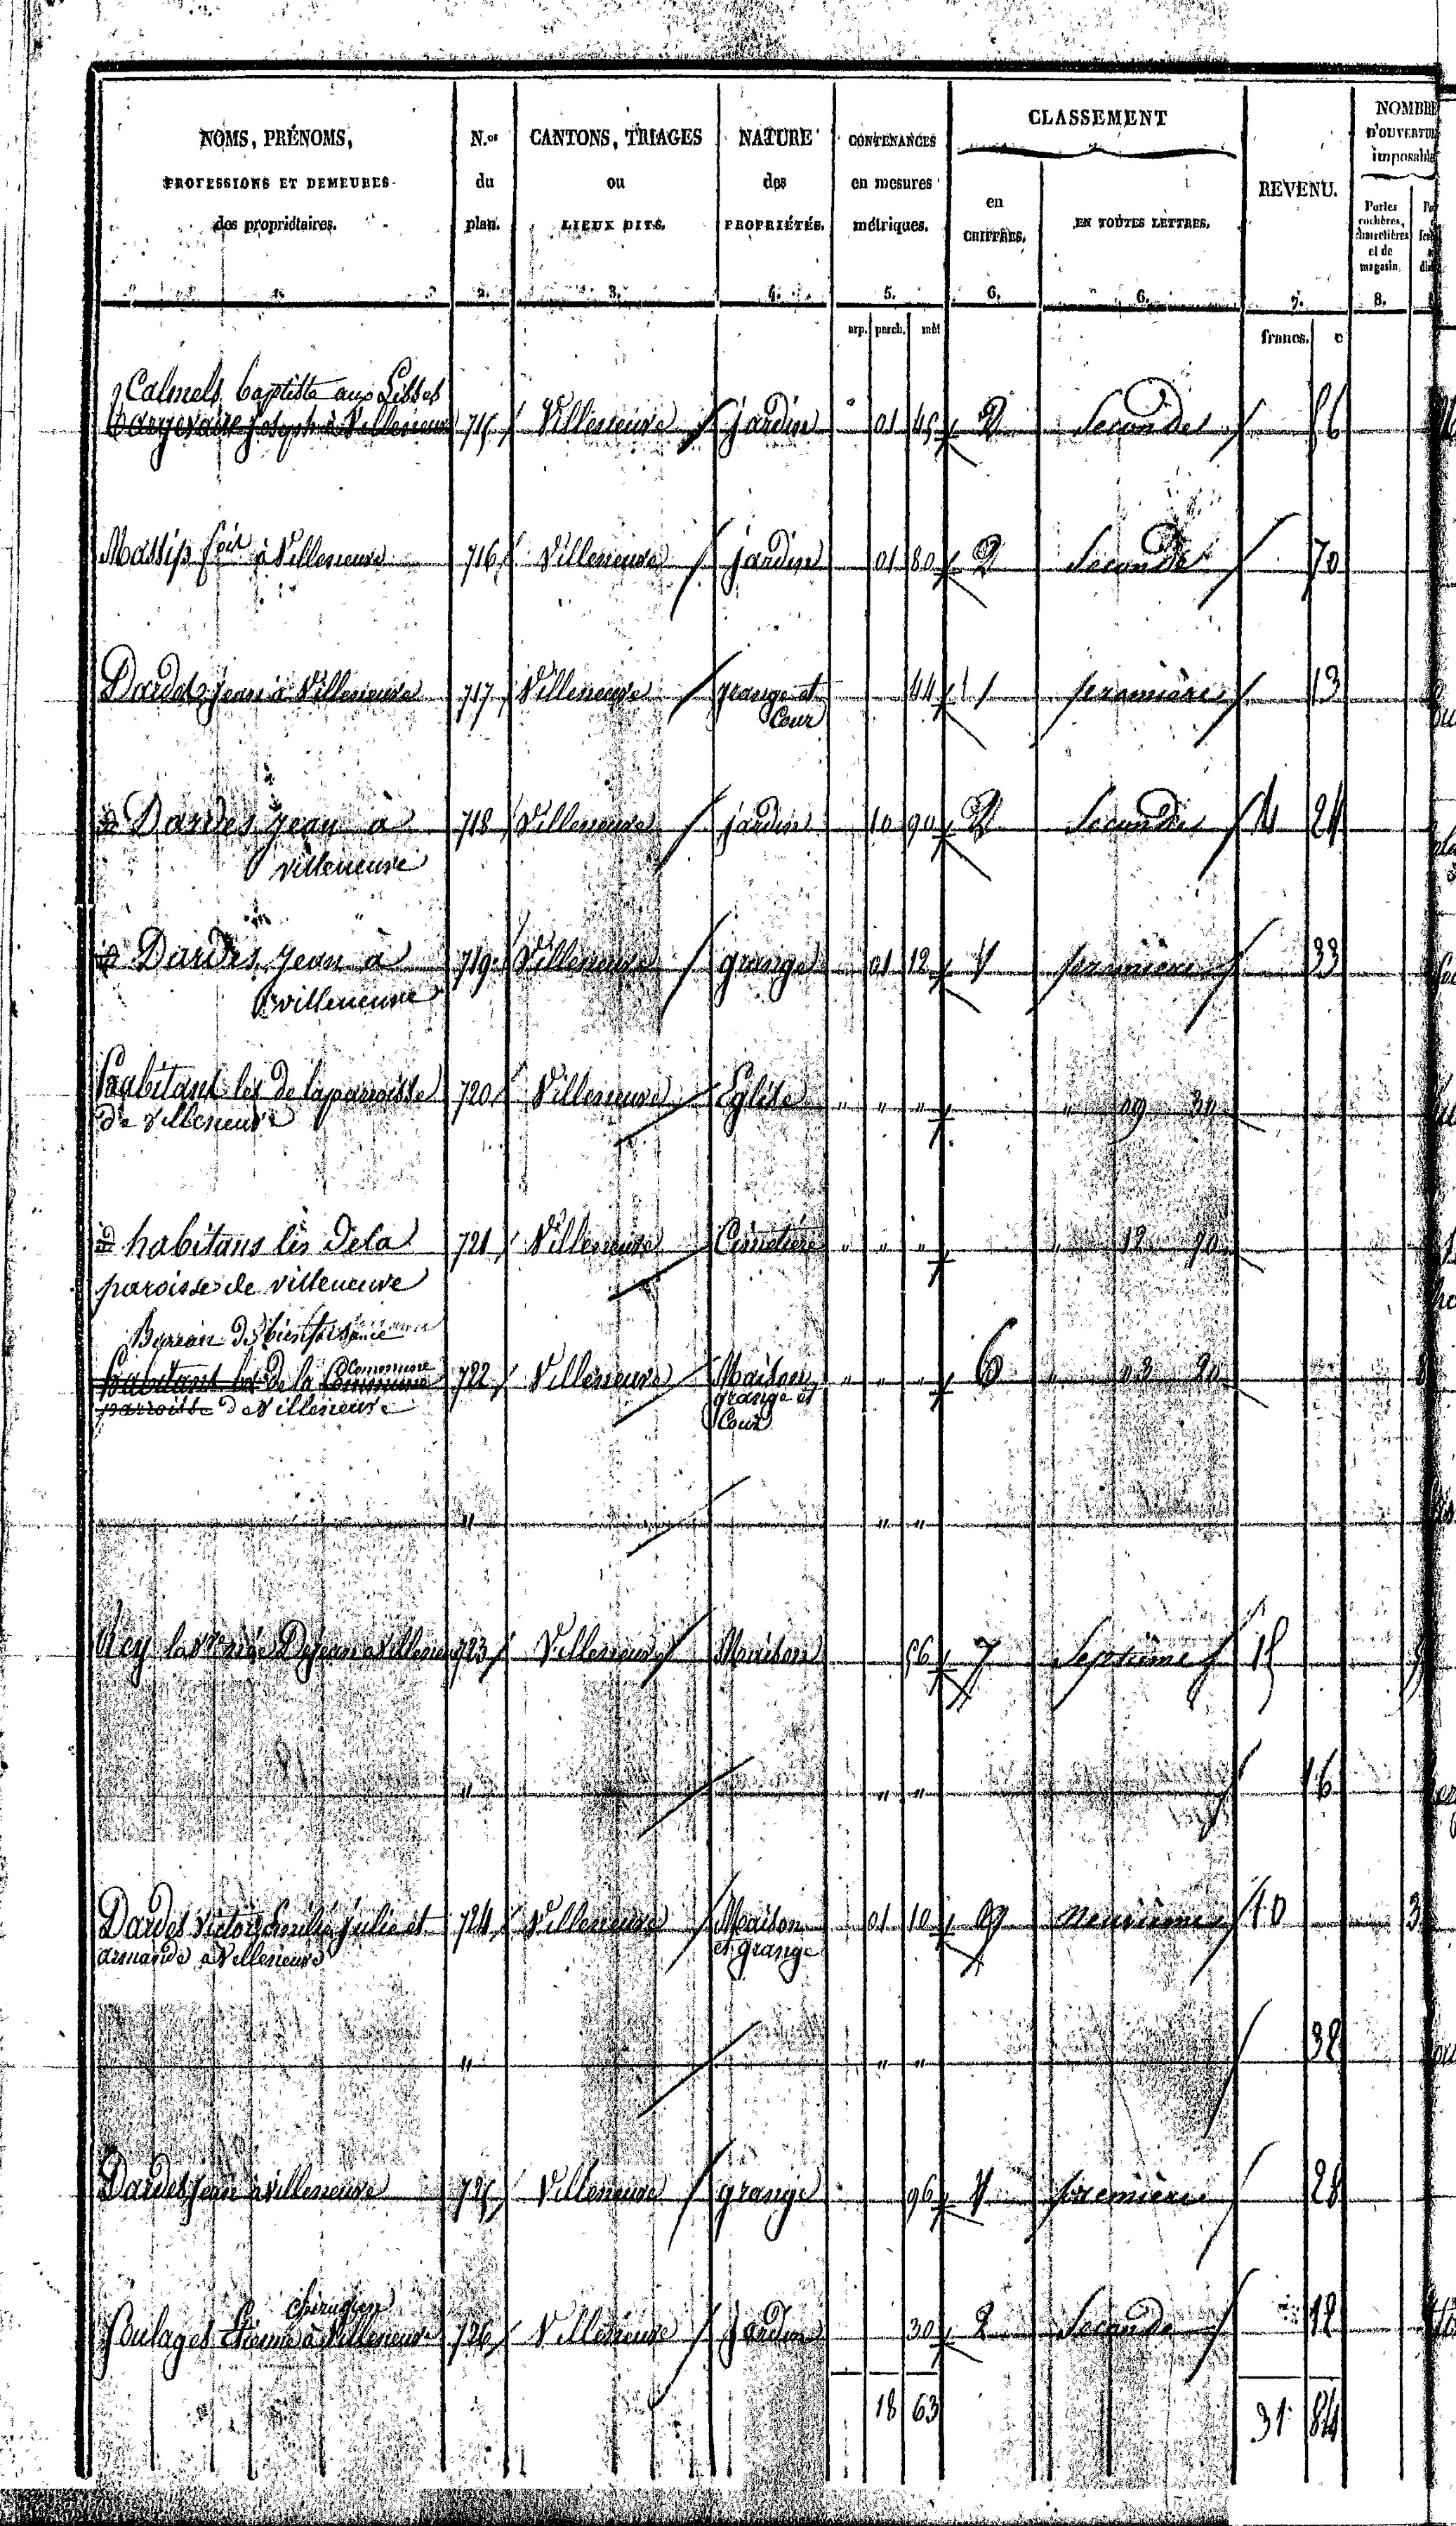 NOMS, PRÉNOMS, PROFESSIONS ET DEMEURES des propriétaires. 1.
N.os du plan. 2.
CANTONS, TRIAGES ou LIEUX DITS. 3.
NATURE des PROPRIÉTÉS. 4.
CONTENANCES en mesures métriques. 5.
CLASSEMENT
en CHIFFRES. 6.
EN TOUTES LETTRES. 6.
REVENU. 7.
NOMBRE D'OUVERTU imposable
Portes cochères, charretières et de magasin. 8.
arp. perch. mèt
francs. c
Calmels Baptiste aux
Joseph à Villeneuve 715 Villeneuve jardin 01 45 2 Seconde 56
Massip à Villeneuve 716 Villeneuve jardin 01 80 2 Seconde 70
Dardes jean à Villeneuve 717 Villeneuve grange et 44 1 première 13
Cour
Dardes, jean à 718 Villeneuve jardin 10 90 2 Seconde 4 24
villeneuve
Dardes, jean à 719 Villeneuve grange 01 12 1 première 33
villeneuve
habitant les de la paroisse 720 Villeneuve Eglise " " "
de Villeneuve
habitans les de la 721 Villeneuve Cimetière " " " " 12 70
paroisse de villeneuve
Bureau de bienfaisance
Commune
habitant les de la Commune 722 Villeneuve Maison " " " 6
paroisse de Villeneuve grange et
Cour
" " "
Rey la Vve née Dejean 723 Villeneuve Maison 56 7 Septième 15
" " " 16
Dardes Victor, Emilie, julie et 724 Villeneuve Maison 01 10 9 neuvième 10 3
armande à Villeneuve et grange
" " " 32
Dardes jean à villeneuve 725 Villeneuve grange 96 1 première 28
chirugien
Poulages Etienne à Villeneuve 726 Villeneuve Jardin 30 2 Seconde 12
18 63 31 84